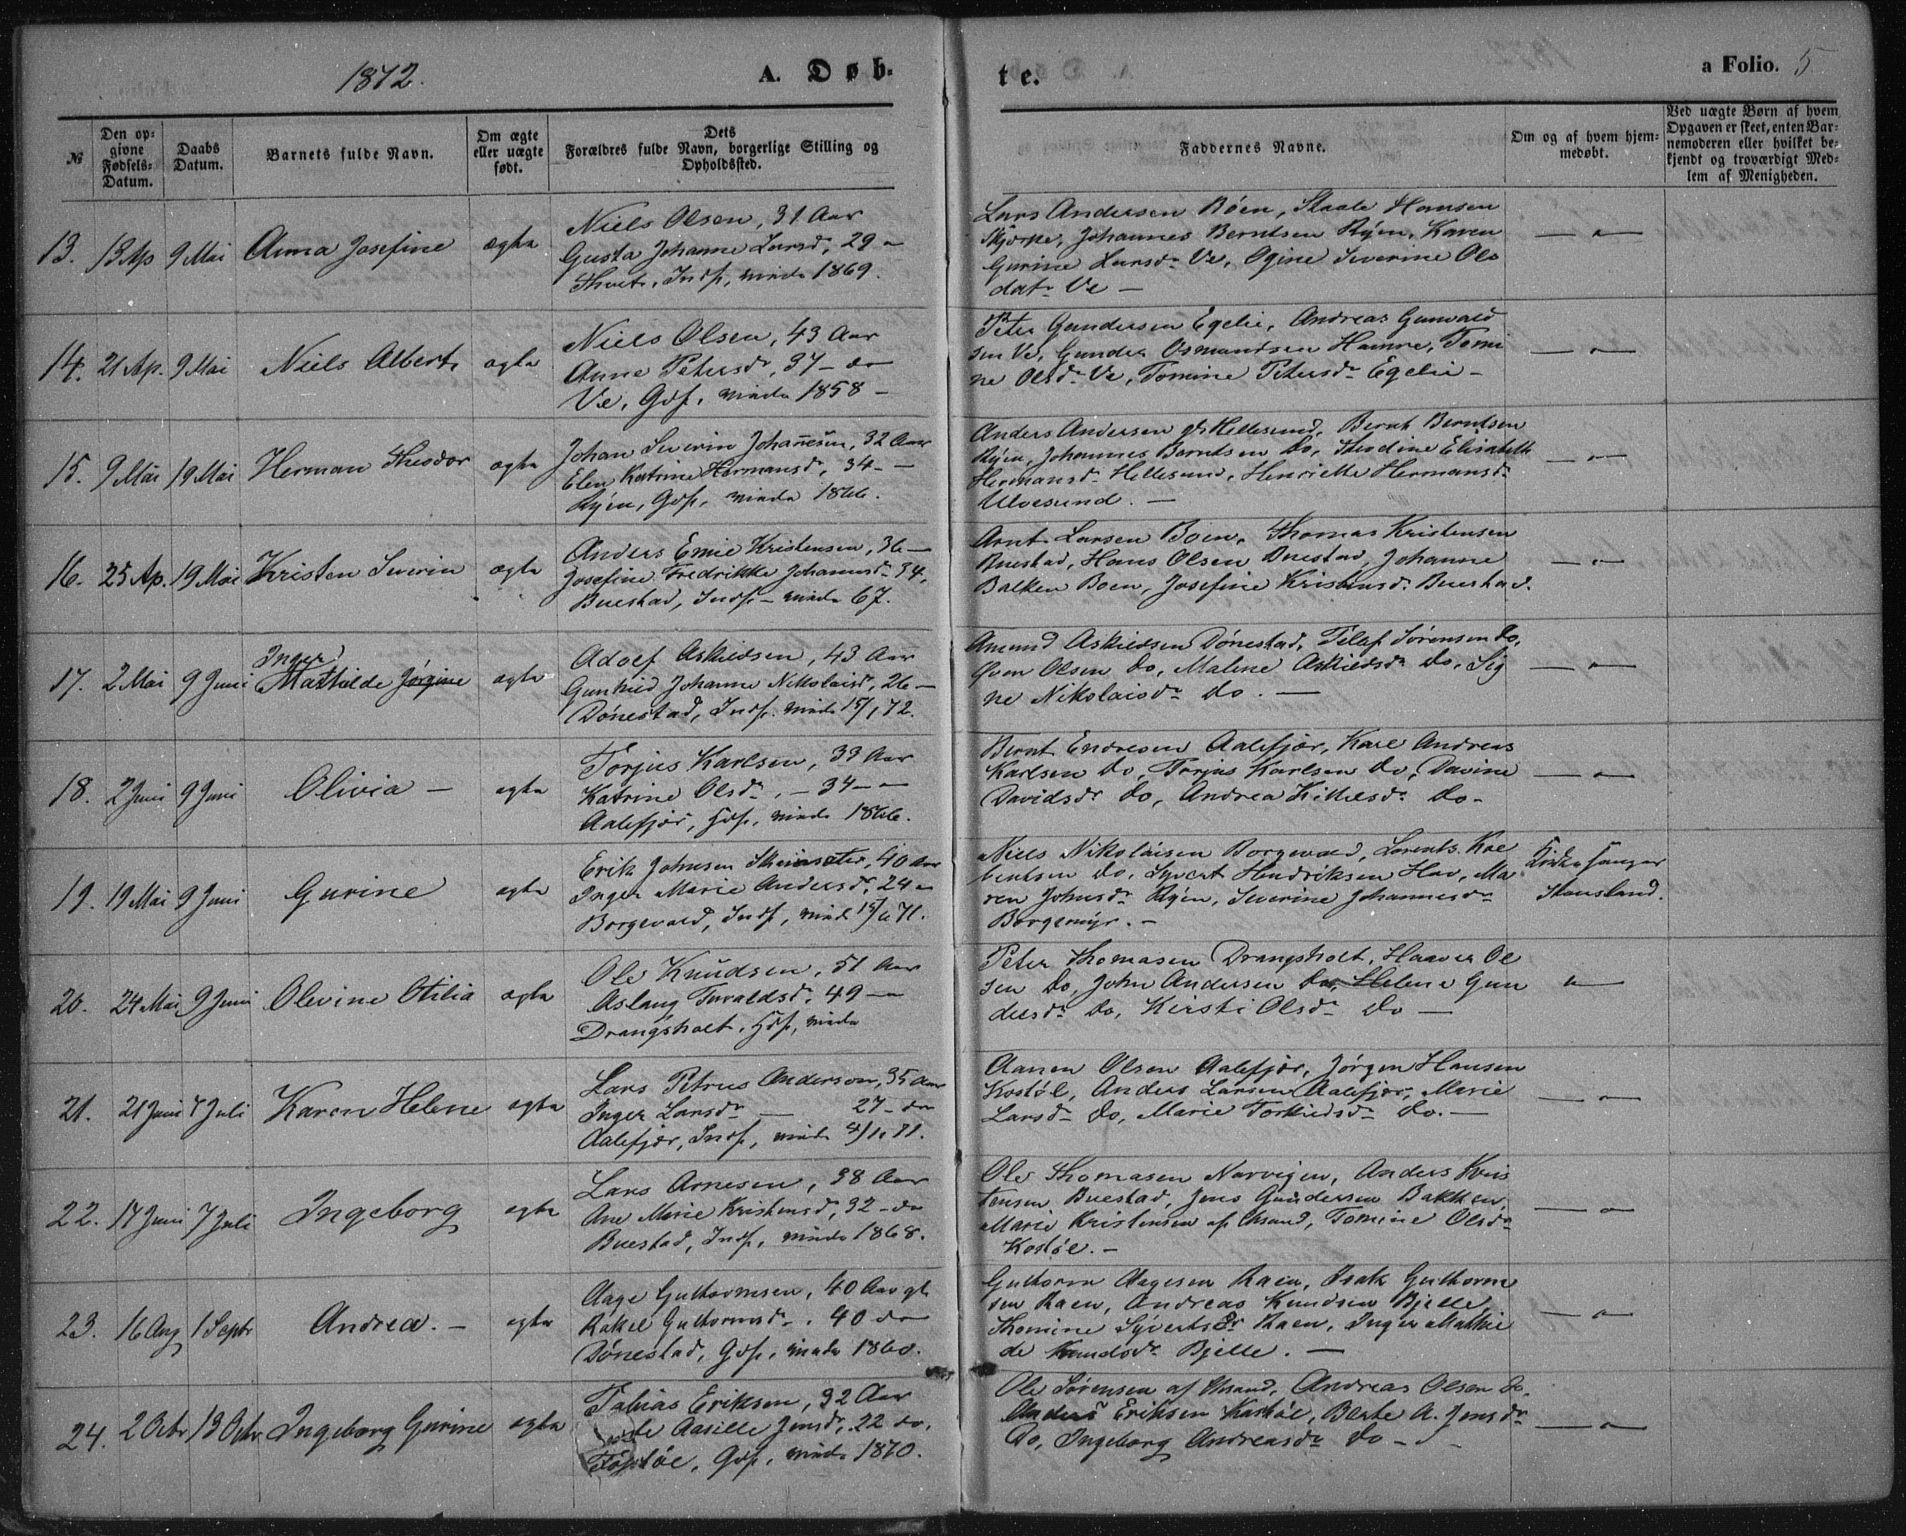 1872.
A. Døb-
te.
a Folio. 5
№
Den op-
givne
Fødsels-
Datum.
Daabs
Datum.
Barnets fulde Navn.
Om ægte
eller uægte
født.
Dets
Forældres fulde Navn, borgerlige Stilling og
Opholdssted.
Faddernes Navne.
Om og af hvem hjem-
medøbt.
Ved uægte Børn af hvem
Opgaven er skeet, enten Bar-
nemoderen eller hvilket be-
kjendt og troværdigt Med-
lem af Menigheden.
13. 13 Ap 9 Mai Anna Josefine ægte
Niels Olsen, 31 Aar
Gusta Johanne Larsd., 29 –
Indf, viede 1869.
Lars Andersen Bøen, Staale Hansen
Johannes Berntsen Ryen, Karen
Gurine Larsdr Ve, Ogine Severine Ols
datr Ve –
14. 21 Ap. 9 Mai Niels Albert ægte
Niels Olsen, 43 Aar
Anne Petersdr, 37 – do
Ve, Gdf, viede 1858 –
Peter Gundersen Egelie, Andreas Gunvald
sen Ve, Gunder Osmundsen Hamre, Tomi
ne Olsdr Ve, Tomine Petersdr Egelie –
15. 9 Mai 19 Mai Herman Theodor ægte
Johan Severin Johanesen, 32 Aar
Elen Katrine Hermansdr, 34 – –
Ryen, Gdf, viede 1866.
Anders Andersen Hellesund, Bernt Berntsen
Ryen, Johannes Berntsen Do, Theodine Elisabeth
Hermansdr Hellesund, Henriette Hermansdr
Ulvesund. –
16. 25 Ap. 19 Mai Kristen Severin ægte
Anders Emil Kristensen, 36 –
Josefine Fredrikke Johannsdr 34,
Buestad, Indf – viede 67.
Arnt Larsen Boen, Thomas Kristensen
Buestad, Hans Olsen Buestad, Johanne
Balken Boen, Josefine Kristensdr Buestad.
17. 2 Mai 9 Juni Inger
Mathilde Jørgine ægte
Adolf Askildsen, 43 Aar
Gunhild Johanne Nikolaisdr, 26 –
Dønestad, Indf. viede 15/1 72.
Amund Askildsen Dønestad, Tellef Sørensen Do,
Sven Olsen Do, Malene Askildsdr Do, Sig
ne Nikolaisdr Do. –
18. 2 Juni 9 Juni Olivia – ægte
Torjus Karlsen, 33 Aar
Katrine Olsdr, – 34 – –
Aalefjær, Hdf, viede 1866.
Bernt Endresen Aalefjær, Karl Andreas
Karlsen Do, Torjus Karlsen Do, Davine
Davidsdr Do, Andrea Kittelsdr Do –
19. 19 Mai 9 Juni Gurine ægte
Erik Johnsen 40 Aar
Inger Marie Andersdr, 24 –
Borgevald, Indf, viede 15/6 71.
Niels Nikolaisen Borgevald, Lorents Kal
bentsen Do, Syvert Hendriksen Hav, Ma
ren Johnsdr Ryen, Severine Johannesdr
Borgemyr. –
Kirkesanger
Stensland.
20. 24 Mai 9 Juni Olevine Otilia ægte
Ole Knudsen, 51 Aar
Aslaug Tarvaldsdr, 49 –
Drangsholt, Hdf, viede
Peter Thomasen Drangsholt, Haaver Ol
sen Do, John Andersen Do, Helene Gun
dersdr Do, Kirsti Olsdr Do –
21. 21 Juni 7 Juli Karen Helene ægte
Lars Petrus Anderson, 35 Aar
Inger Larsdr – 27 – do
Aalefjær, Indf, viede 71.
Aanen Olsen Aalefjær, Jørgen Hansen
Kostøl, Anders Larsen Aalefjær, Marie
Larsdr Do, Marie Torkildsdr Do. –
22. 17 Juni 7 Juli Ingeborg ægte
Lars Arnesen, 38 Aar
Ane Marie Kristensd, 32 – do
Buestad, Indf, viede 1868.
Ole Thomasen Narvigen, Anders Kris
tensen Buestad, Jens Gundersen Bakken,
Marie Kristensen af Chrsand, Tomine Olsdr
Kostøl. –
23. 16 Aug 1 Septr Andrea. – ægte
Aage Guthormsen, 40 Aar gl.
Rakel Guthormsdr, 40 do
Dønestad, Gdf, viede 1860.
Guthorm Aagesen Raen, Isak Guthorm
sen Raen, Andreas Knudsen Bjelle,
Thomine Syvertsdr Raen, Inger Mathil
de Knudsdr Bjelle. –
24. 2 Octr 13 Octr Ingeborg Gurine ægte
Tobias Eriksen, 32 Aar
Aasille Jensdr, 22 do,
Gdf, viede 1870.
Ole Sørensen af Chrsand, Andreas Olsen Do,
Anders Eriksen Kostøl, Berte A. Jensdr
Do, Ingeborg Andreasdr Do –